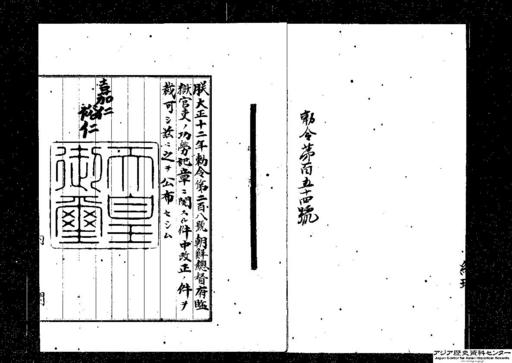 勅令第百五十四號
朕大正十二年勅令第二百八號朝鮮總督府監
獄官吏ノ功勞記章ニ關スル件中改正ノ件ヲ
裁可シ茲ニ之ヲ公布セシム
嘉仁
裕仁
天皇御璽
内閣
アジア歴史資料センター
Japan Center for Asian Historical Records